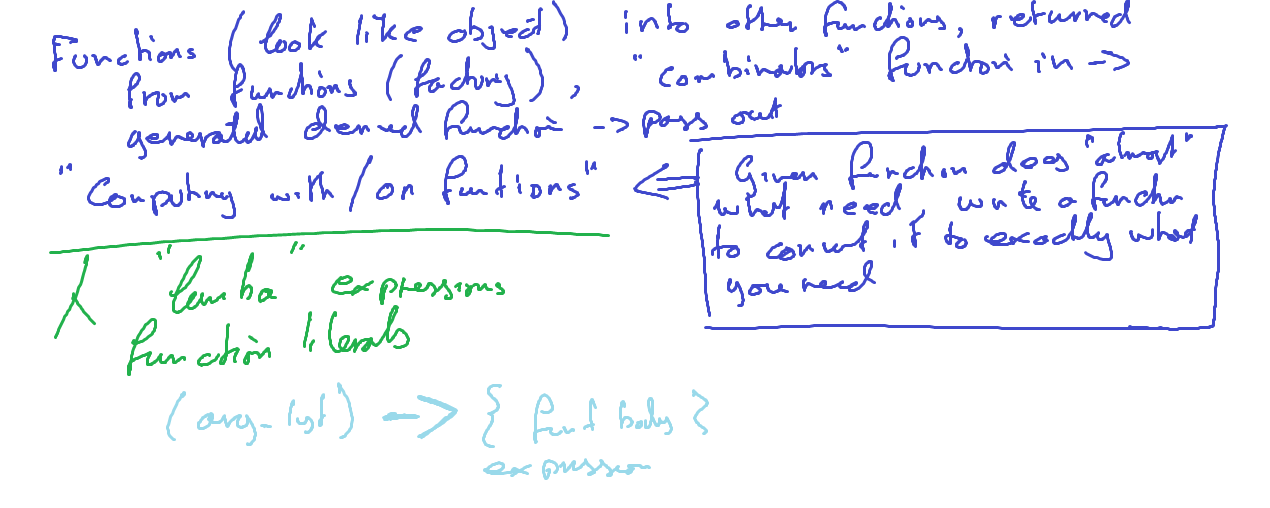 Functions (look like object) into other functions, returned
from functions (factory), "combinators" function in ->
generated derived function -> pass out
"Computing with/on funtions" <=
Given function does "almost"
what need, write a function
to convert it to exactly what
you need
λ "lamba" expressions
function literals
(arg-list) -> { funt body }
expression